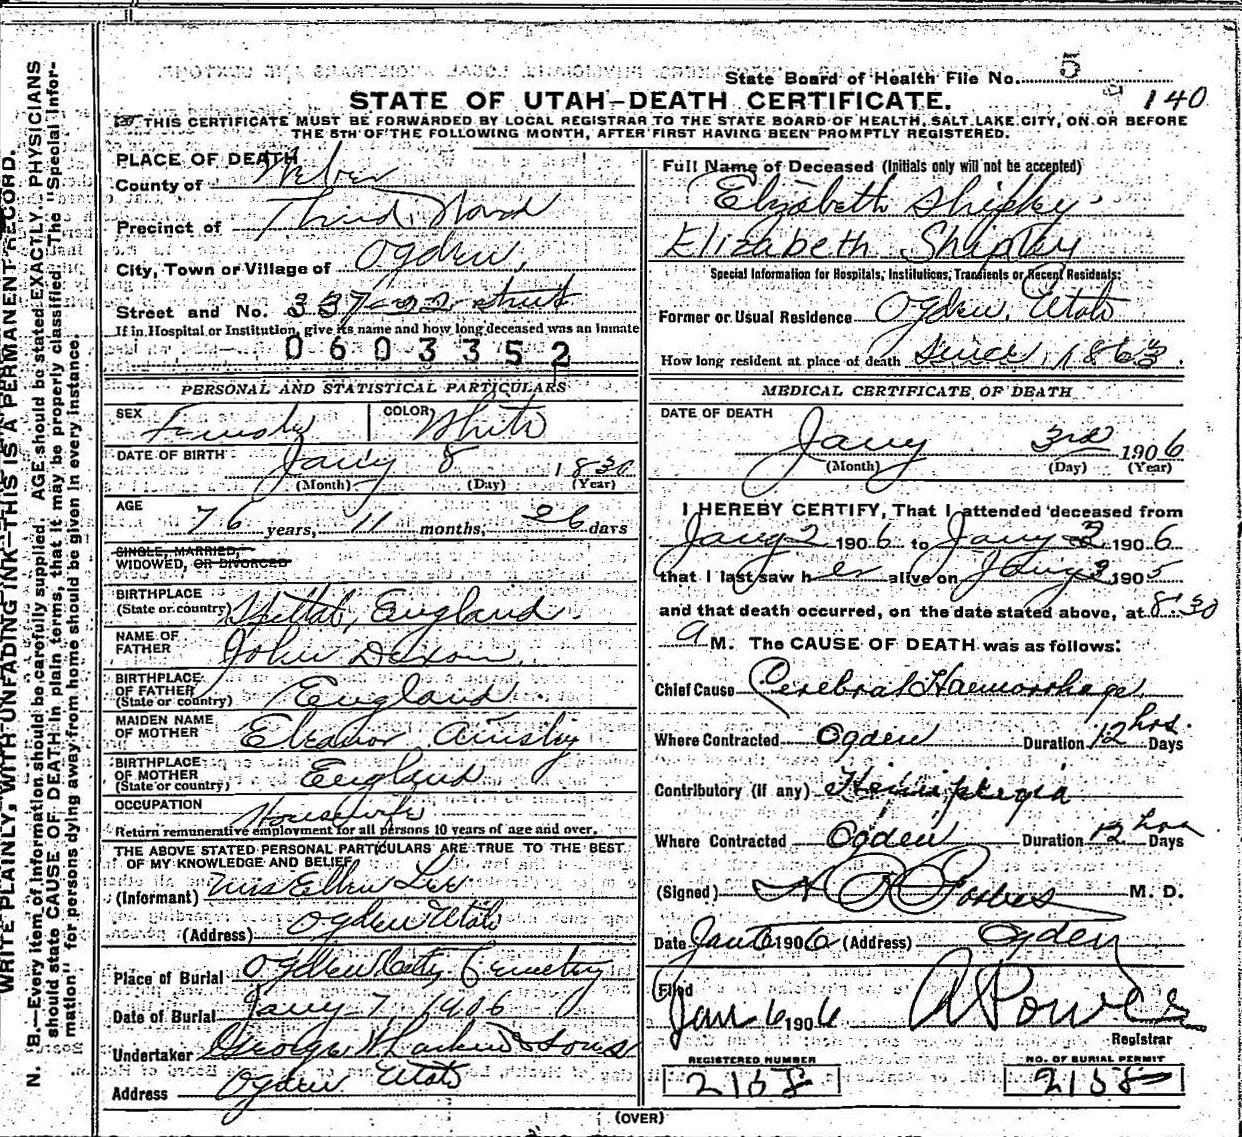 State Board of Health File No. 5
140
STATE OF UTAH—DEATH CERTIFICATE.
THIS CERTIFICATE MUST BE FORWARDED BY LOCAL REGISTRAR TO THE STATE BOARD OF HEALTH, SALT LAKE CITY, ON OR BEFORE
THE 5TH OF THE FOLLOWING MONTH, AFTER FIRST HAVING BEEN PROMPTLY REGISTERED.
WRITE PLAINLY, WITH UNFADING INK—THIS IS A PERMANENT RECORD.
N. B.—Every item of information should be carefully supplied. AGE should be stated EXACTLY. PHYSICIANS
should state CAUSE OF DEATH in plain terms, that it may be properly classified. The "Special Infor-
mation" for persons dying away from home should be given in every instance.
PLACE OF DEATH
County of Weber
Precinct of Third Ward
City, Town or Village of Ogden,
Street and No. 337-22 street
If in Hospital or Institution, give its name and how long deceased was an inmate
0603352
PERSONAL AND STATISTICAL PARTICULARS
SEX Female COLOR White
DATE OF BIRTH Jany 8 1830
(Month) (Day) (Year)
AGE
76 years, 11 months, 26 days
SINGLE, MARRIED,
WIDOWED, OR DIVORCED
BIRTHPLACE
(State or country) England.
NAME OF
FATHER John Dixon
BIRTHPLACE
OF FATHER
(State or country) England.
MAIDEN NAME
OF MOTHER Eleanor Ainsley
BIRTHPLACE
OF MOTHER
(State or country) England
OCCUPATION Housewife
Return remunerative employment for all persons 10 years of age and over.
THE ABOVE STATED PERSONAL PARTICULARS ARE TRUE TO THE BEST
OF MY KNOWLEDGE AND BELIEF
(Informant) Mrs Ellen
(Address) Ogden Utah
Place of Burial Ogden City Cemetery
Date of Burial Jany 7, 1906
Undertaker George W Larkin & Sons
Address Ogden Utah
Full Name of Deceased (Initials only will not be accepted)
Elizabeth Shipley
Elizabeth Shipley
Special Information for Hospitals, Institutions, Transients or Recent Residents:
Former or Usual Residence Ogden, Utah
How long resident at place of death since, 1863.
MEDICAL CERTIFICATE OF DEATH
DATE OF DEATH
Jany 3rd 1906
(Month) (Day) (Year)
I HEREBY CERTIFY, That I attended deceased from
Jany 2 1906 to Jany 3 1906
that I last saw her alive on Jany 3 1905
and that death occurred, on the date stated above, at 8:30
a M. The CAUSE OF DEATH was as follows:
Chief Cause Cerebral Haemorrhage
Where Contracted Ogden Duration 12 hrs. Days
Contributory (if any) Hemiplegia
Where Contracted Ogden Duration 12 hrs Days
(Signed) Forbes M. D.
Date Jan 6 1906 (Address) Ogden
Filed
Jan 6, 1906 Powers
Registrar
REGISTERED NUMBER
2158
NO. OF BURIAL PERMIT
2158
(OVER)